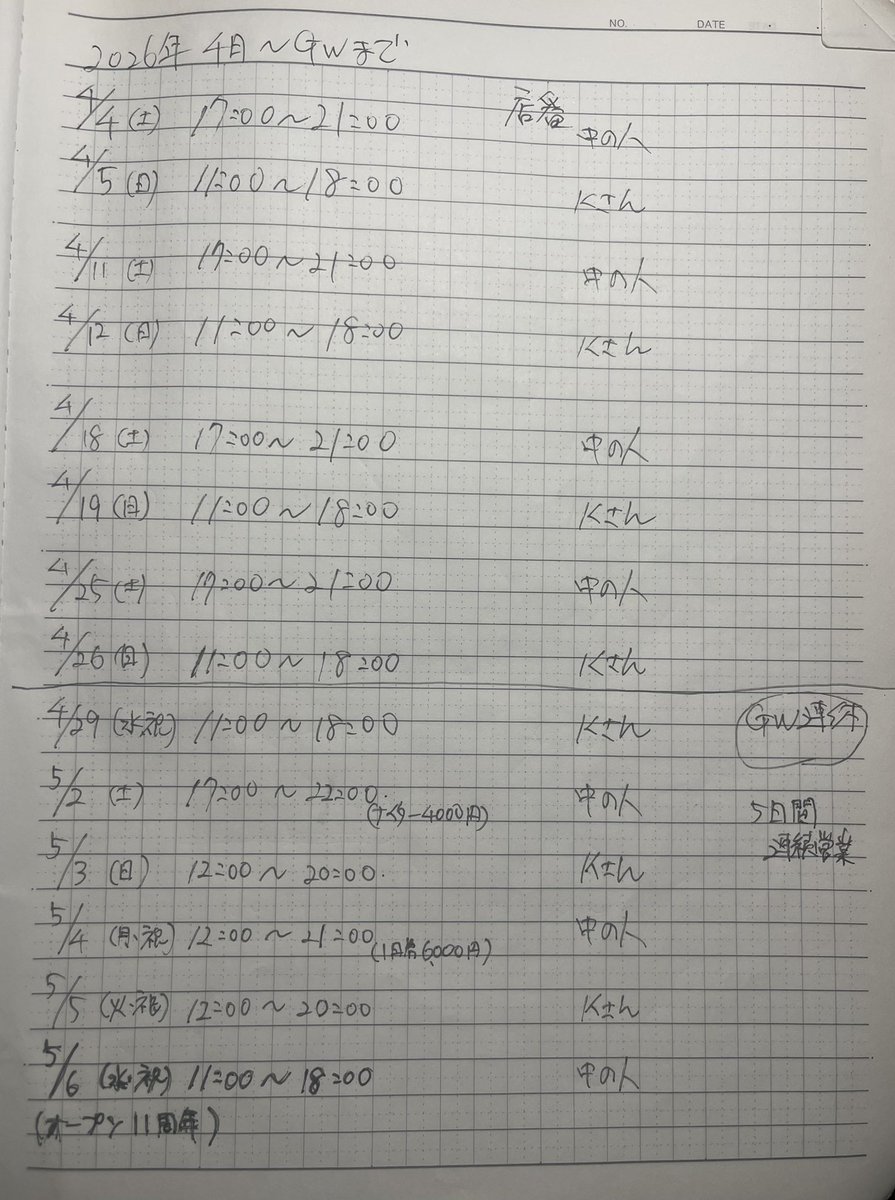 NO. DATE
2026年 4月〜GWまで
4/4(土) 17:00〜21:00 店番 中の人
4/5(日) 11:00〜18:00 Kさん
4/11(土) 17:00〜21:00 中の人
4/12(日) 11:00〜18:00 Kさん
4/18(土) 17:00〜21:00 中の人
4/19(日) 11:00〜18:00 Kさん
4/25(土) 17:00〜21:00 中の人
4/26(日) 11:00〜18:00 Kさん
4/29(水・祝) 11:00〜18:00 Kさん GW連休
5/2(土) 17:00〜22:00 (ナイター4000円) 中の人 5日間
連続営業
5/3(日) 12:00〜20:00 Kさん
5/4(月・祝) 12:00〜21:00 (1日券6,000円) 中の人
5/5(火・祝) 12:00〜20:00 Kさん
5/6(水・祝) 11:00〜18:00 中の人
(オープン11周年)